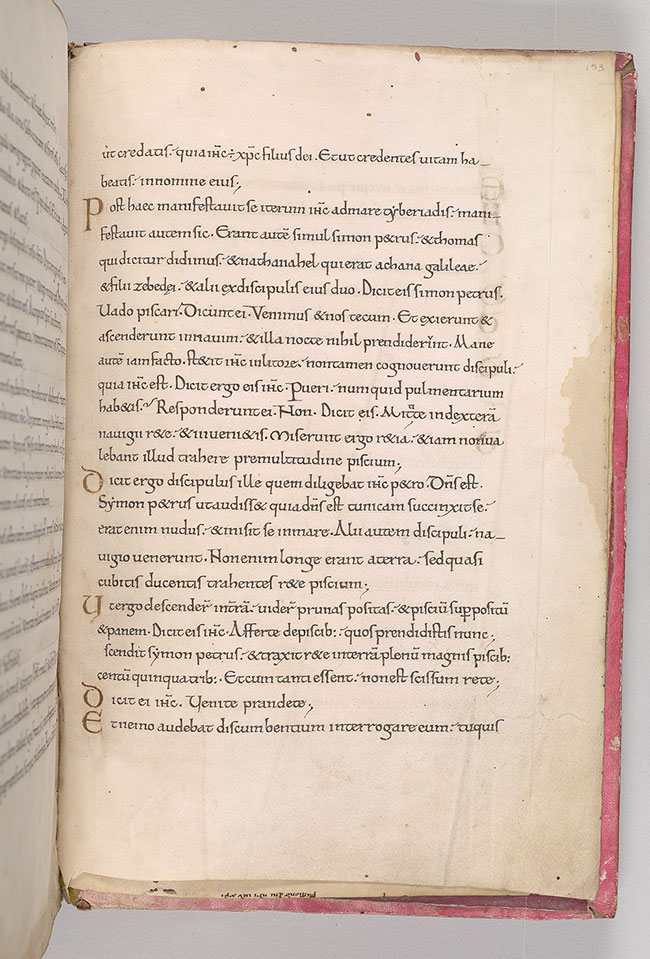 153
ut credatis. quia ihc ÷ xpc filius dei. Et ut credentes uitam ha_
beatis. in nomine eius;
Post haec manifestauit se iterum ihc ad mare tyberiadis. mani_
festauit autem sic. Erant autē simul simon p&rus. & thomas
qui dicitur didimus. & nathanahel qui erat achana galileae.
& filii zebedęi. & alii ex discipulis eius duo. Dicit eis simon petrus.
Uado piscari. Dicunt ei. Venimus & nos tecum. Et exierunt &
ascenderunt in nauim. & illa nocte nihil prendider̄nt. Mane
autē iam facto. st&it ihc in litore. non tamen cognouerunt discipuli.
quia ihc est. Dicit ergo eis ihc. Pueri. num quid pulmentarium
hab&is. Responderunt ei. Non. Dicit eis. Mittite in dexterā
nauigii r&e. & inueni&is. Miserunt ergo r&ia. & iam non ua
lebant illud trahere pre multitudine piscium;
Dicit ergo discipulus ille quem diligebat ihc p&ro. Dn̄s est.
Symon p&rus ut audiss& quia dn̄s est tunicam succinxit se.
erat enim nudus. & misit se in mare. Alii autem discipuli. na_
uigio uenerunt. Non enim longe erant a terra. sed quasi
cubitis ducentis trahentes r&e piscium;
Ut ergo descender̄ in trā. uider̄ prunas positas. & pisciū suppositū
& panem. Dicit eis ihc. Afferte de piscib: quos prendidistis nunc;
scendit symon petrus. & traxit r&e in terrā plenū magnis piscib:
centū quinquatrib:. Et cum tanti essent. non est scissum rete;
Dicit ei ihc. Uenite prandete;
Et nemo audebat discumbentium interrogare eum. tu quis